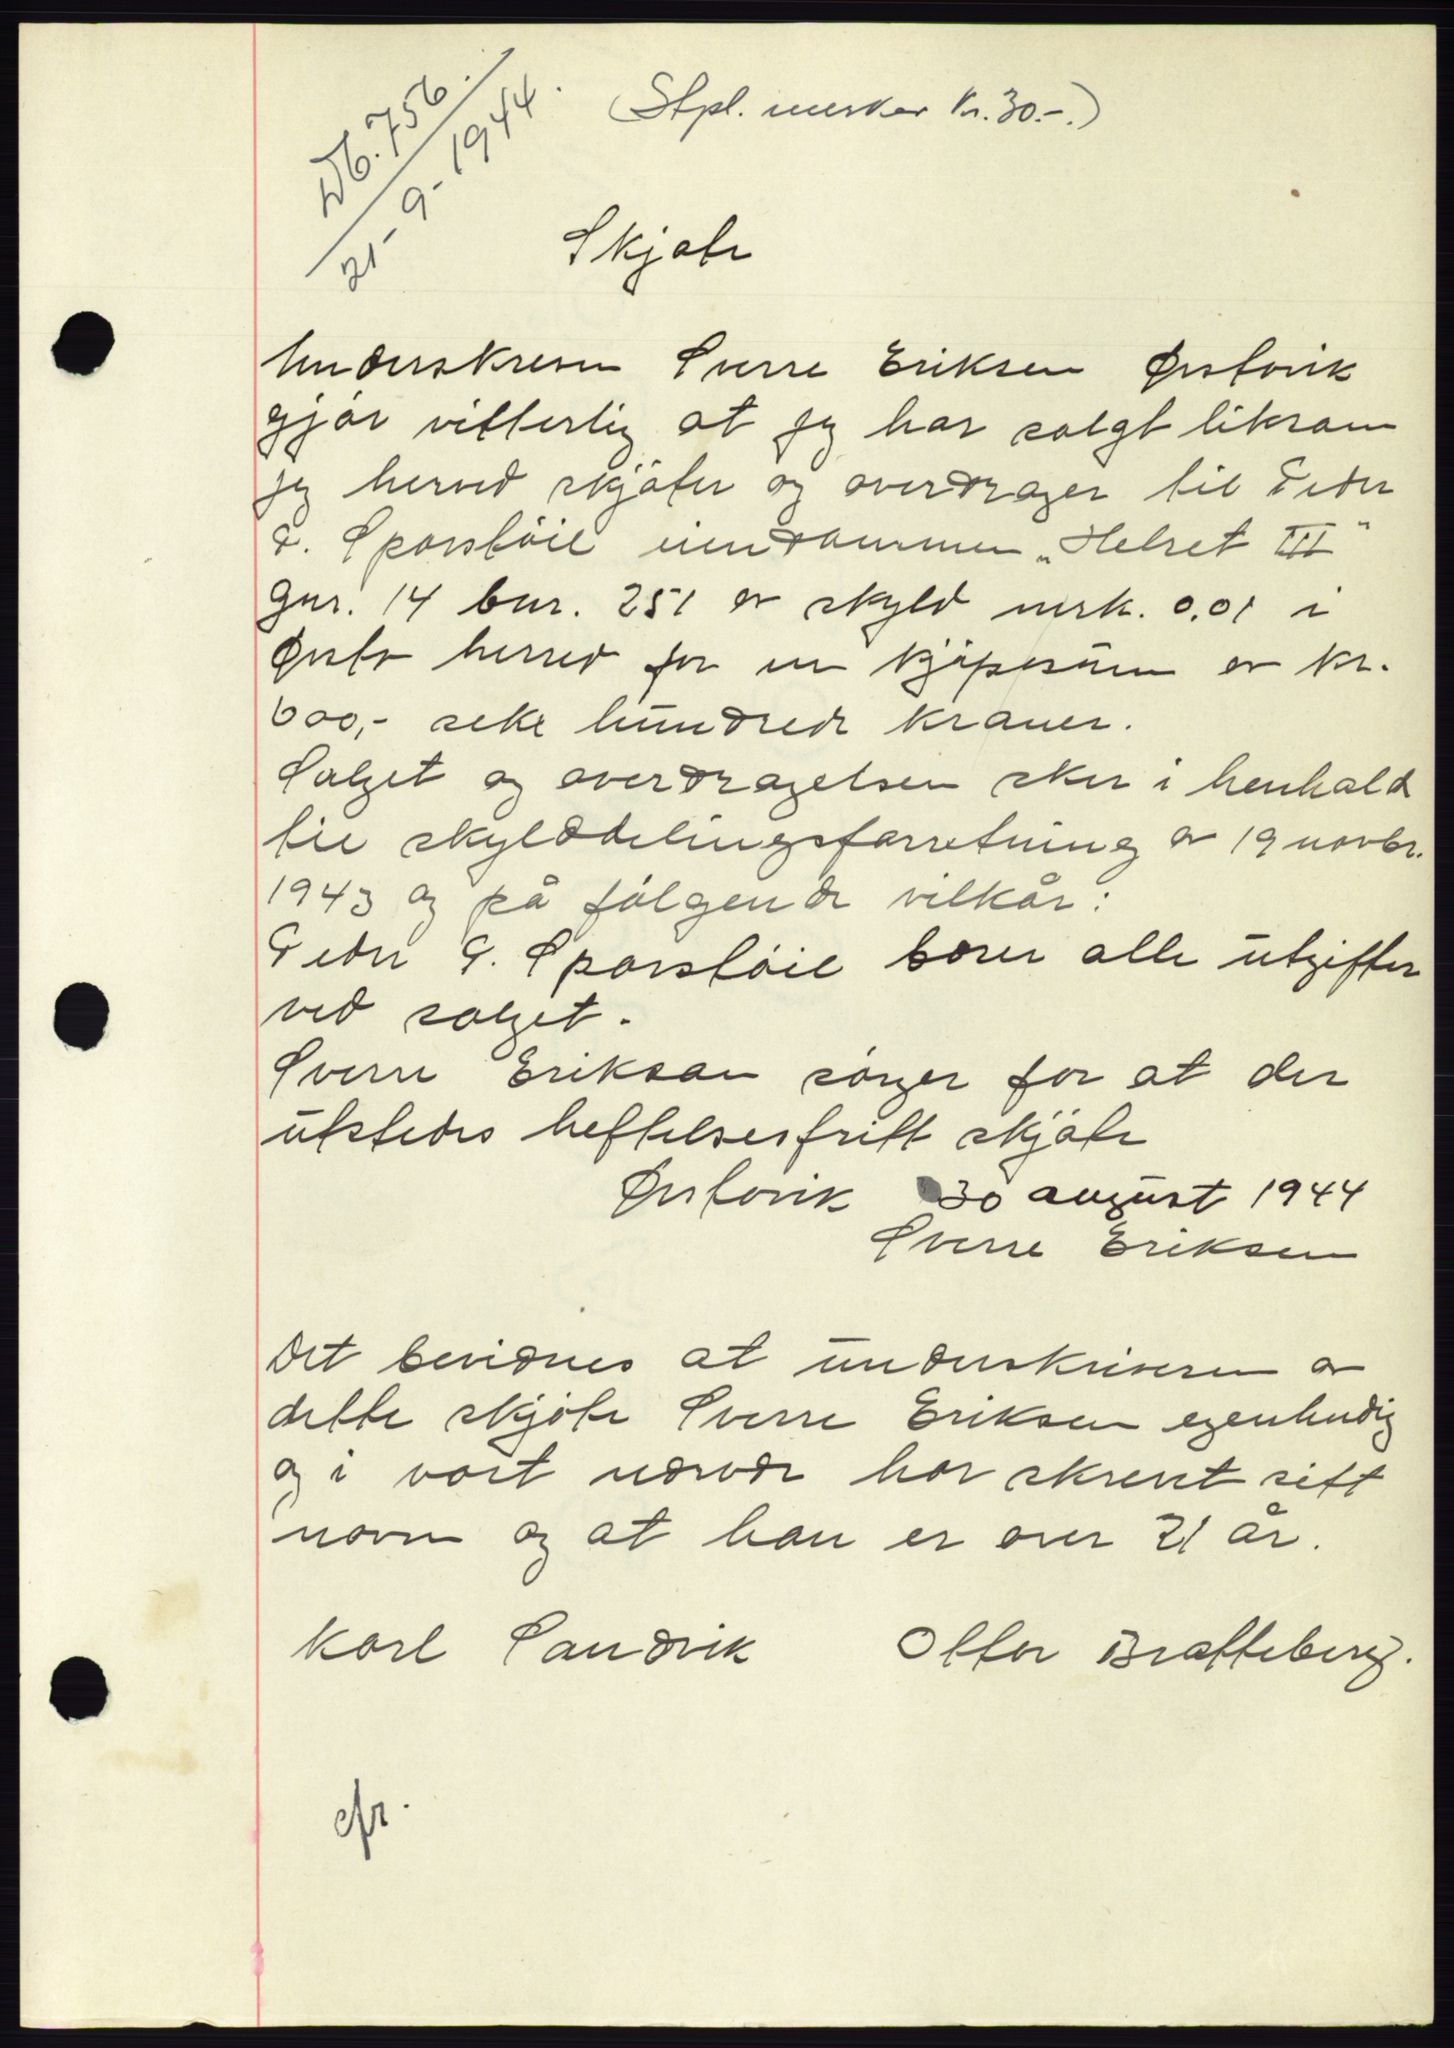 Db. 756.
21-9-1944.
(Stpl. merker kr. 30.-.)
Skjøte
Underskreven Sverre Eriksen Ørstavik
gjør vitterlig at jeg har solgt liksom
jeg herved skjøter og overdrager til Peder
P. Sporstøil eiendommen „Helset III"
gnr. 14 bnr. 251 av skyld mrk. 0,01 i
Ørsta herred for en kjøpesum av kr.
600,- seks hundrede kroner.
Salget og overdragelsen sker i henhold
til skylddelingsforretning av 19 novbr.
1943 og på følgende vilkår:
Peder P. Sporstøil bærer alle utgifter
ved salget.
Sverre Eriksen sørger for at der
utstedes heftelsesfritt skjøte
Ørstavik 30 august 1944
Sverre Eriksen
Det bevidnes at underskriveren av
dette skjøte Sverre Eriksen egenhendig
og i vort nærvær har skrevet sitt
navn og at han er over 21 år.
Karl Sandvik Ottar Bratteberg.
cfr.